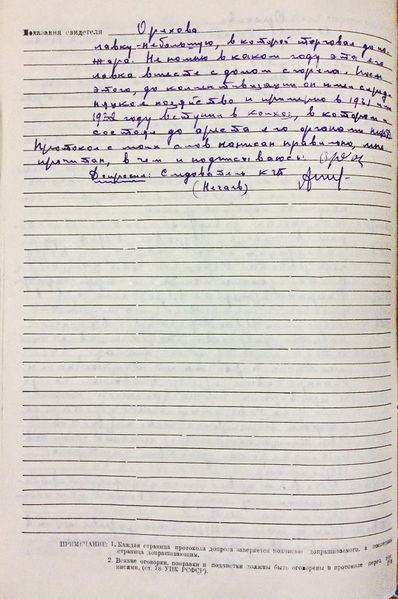 Показания свидетеля Орехова
лавку небольшую, в которой торговал до по-
жара. Не помню в каком году эта его
лавка вместе с домом сгорела. После
этого, до коллективизации он имел серед-
няцкое хозяйство и примерно в 1931 или
1932 году вступил в колхоз, в котором и
состоял до ареста его органами НКВД.
Протокол с моих слов написан правильно, мне
прочитан, в чем и подписываюсь:
Допросил: Следователь КГБ
(Нечаев)
ПРИМЕЧАНИЕ: 1. Каждая страница протокола допроса заверяется подписью допрашиваемого, а последняя
страница допрашивающим.
2. Всякие оговорки, поправки и подчистки должны быть оговорены в протоколе перед
писями, (ст. 78 УПК РСФСР).